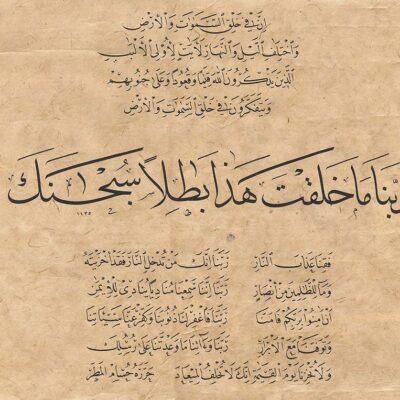 إن في خلق السموت والأرض
واختلف اليل والنهار لأيت لأولي الألبب
الذين يذكرون الله قيما وقعودا وعلى جنوبهم
ويتفكرون في خلق السموت والأرض
ربنا ما خلقت هذا بطلاً سبحنك
١٤٣٥
فقنا عذاب النار ربنا إنك من تدخل النار فقد أخزيته
وما للظلمين من أنصار ربنا إننا سمعنا مناديا ينادي للإيمن
أن أمنوا بربكم فأمنا ربنا فاغفر لنا ذنوبنا وكفر عنا سيئاتنا
وتوفنا مع الأبرار ربنا وءاتنا ما وعدتنا على رسلك
ولا تخزنا يوم القيمة إنك لا تخلف الميعاد حرره حسام المطر